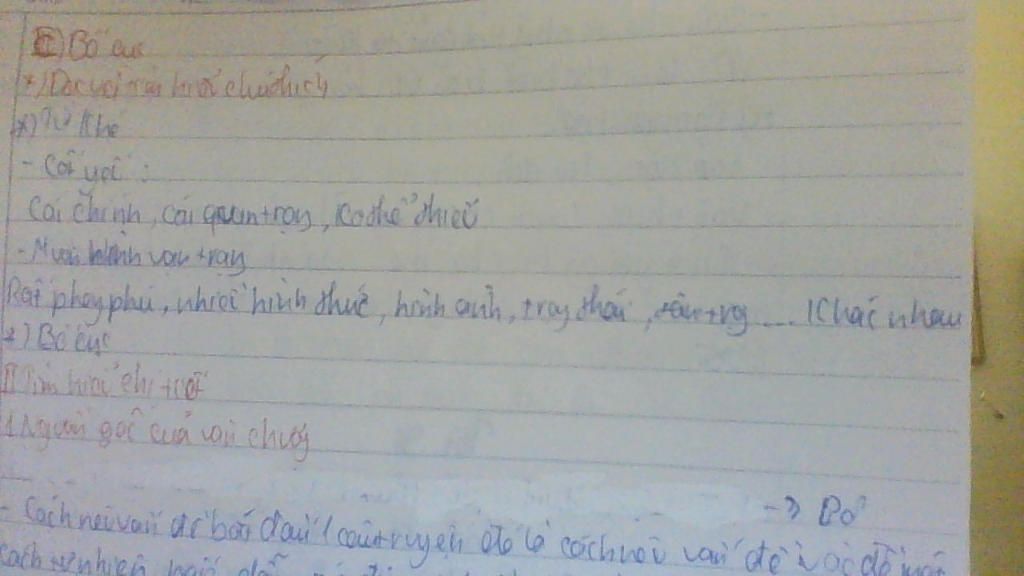 Bố cục
*) Đọc với tìm hiểu chú thích
*) Từ khó
- Cốt yếu :
Cái chính, cái quan trọg, ko thể thiếu
- Muôn hình vạn trạg
Rất phog phú, nhiều hình thức, hình ảnh, trạg thái, .... khác nhau
*) Bố cục
II Tìm hiểu chi tiết
1. Nguồn gốc của văn chươg
→ Bố
- Cách nêu vấn đề bắt đầu 1 câu truyện đó là cách nói vấn đề
cách tự nhiên